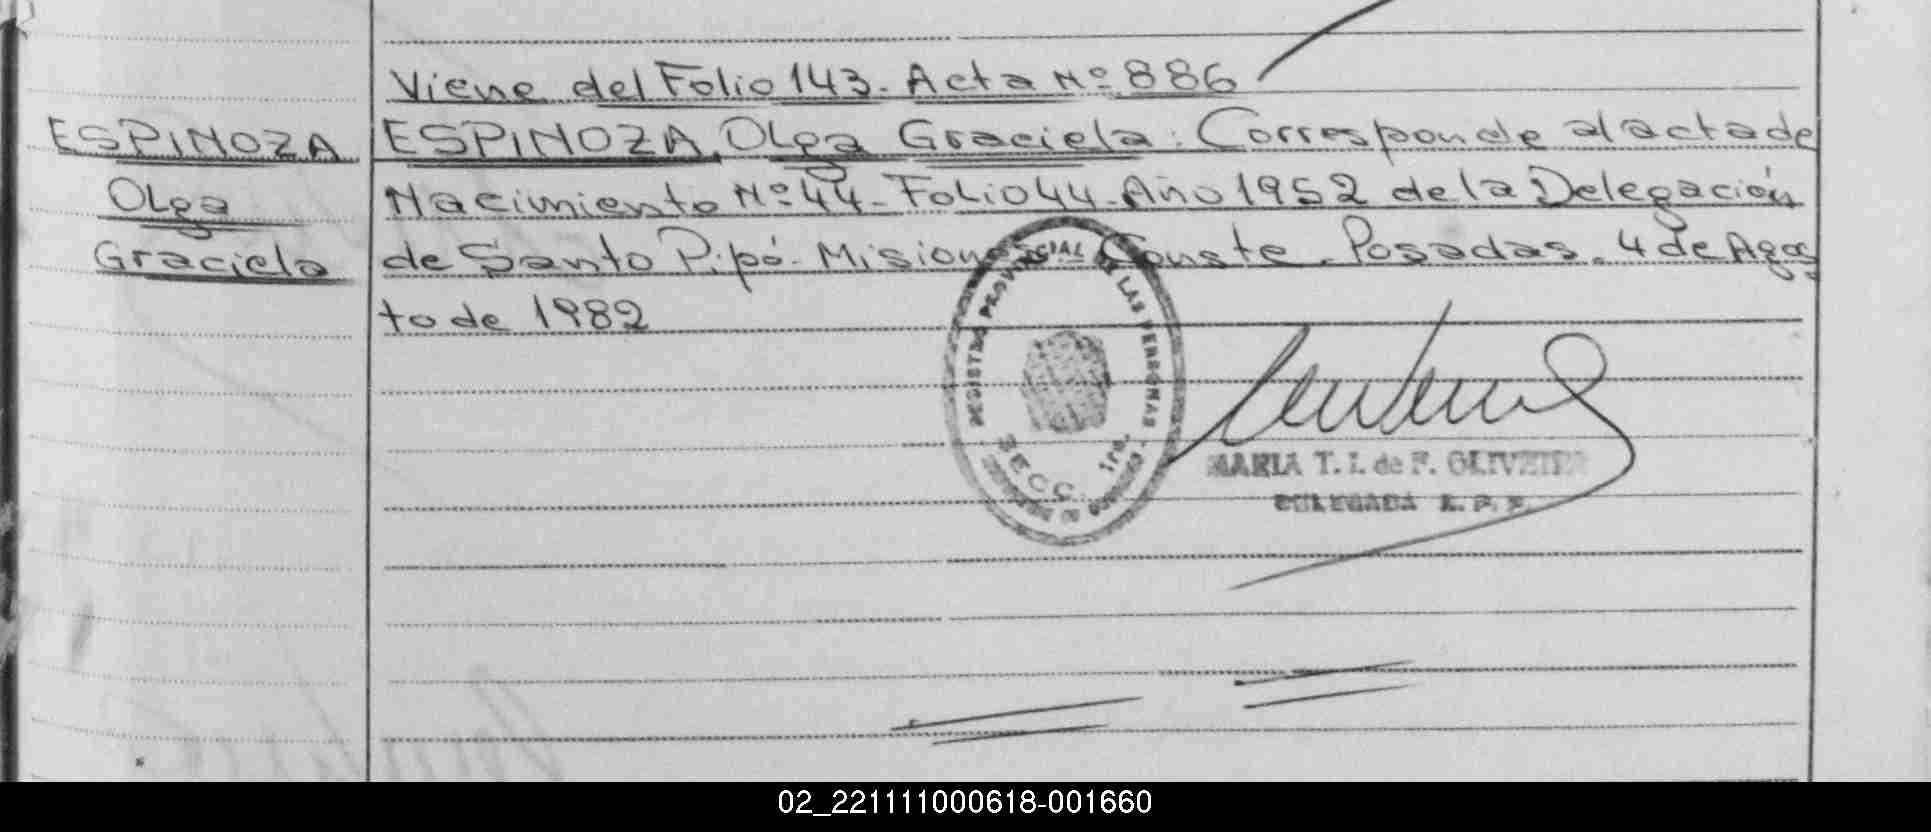 Viene del Folio 143. Acta Nº 886
ESPINOZA
Olga
Graciela
ESPINOZA, Olga Graciela: Corresponde al acta de
Nacimiento Nº 44 - Folio 44 - Año 1952 de la Delegación
de Santo Pipó - Misiones Conste. Posadas, 4 de Agos
to de 1982
REGISTRO PROVINCIAL DE LAS PERSONAS
SECC. 1ra.
MARIA T. I. de F. OLIVEIRA
DELEGADA R. P. P.
02_221111000618-001660